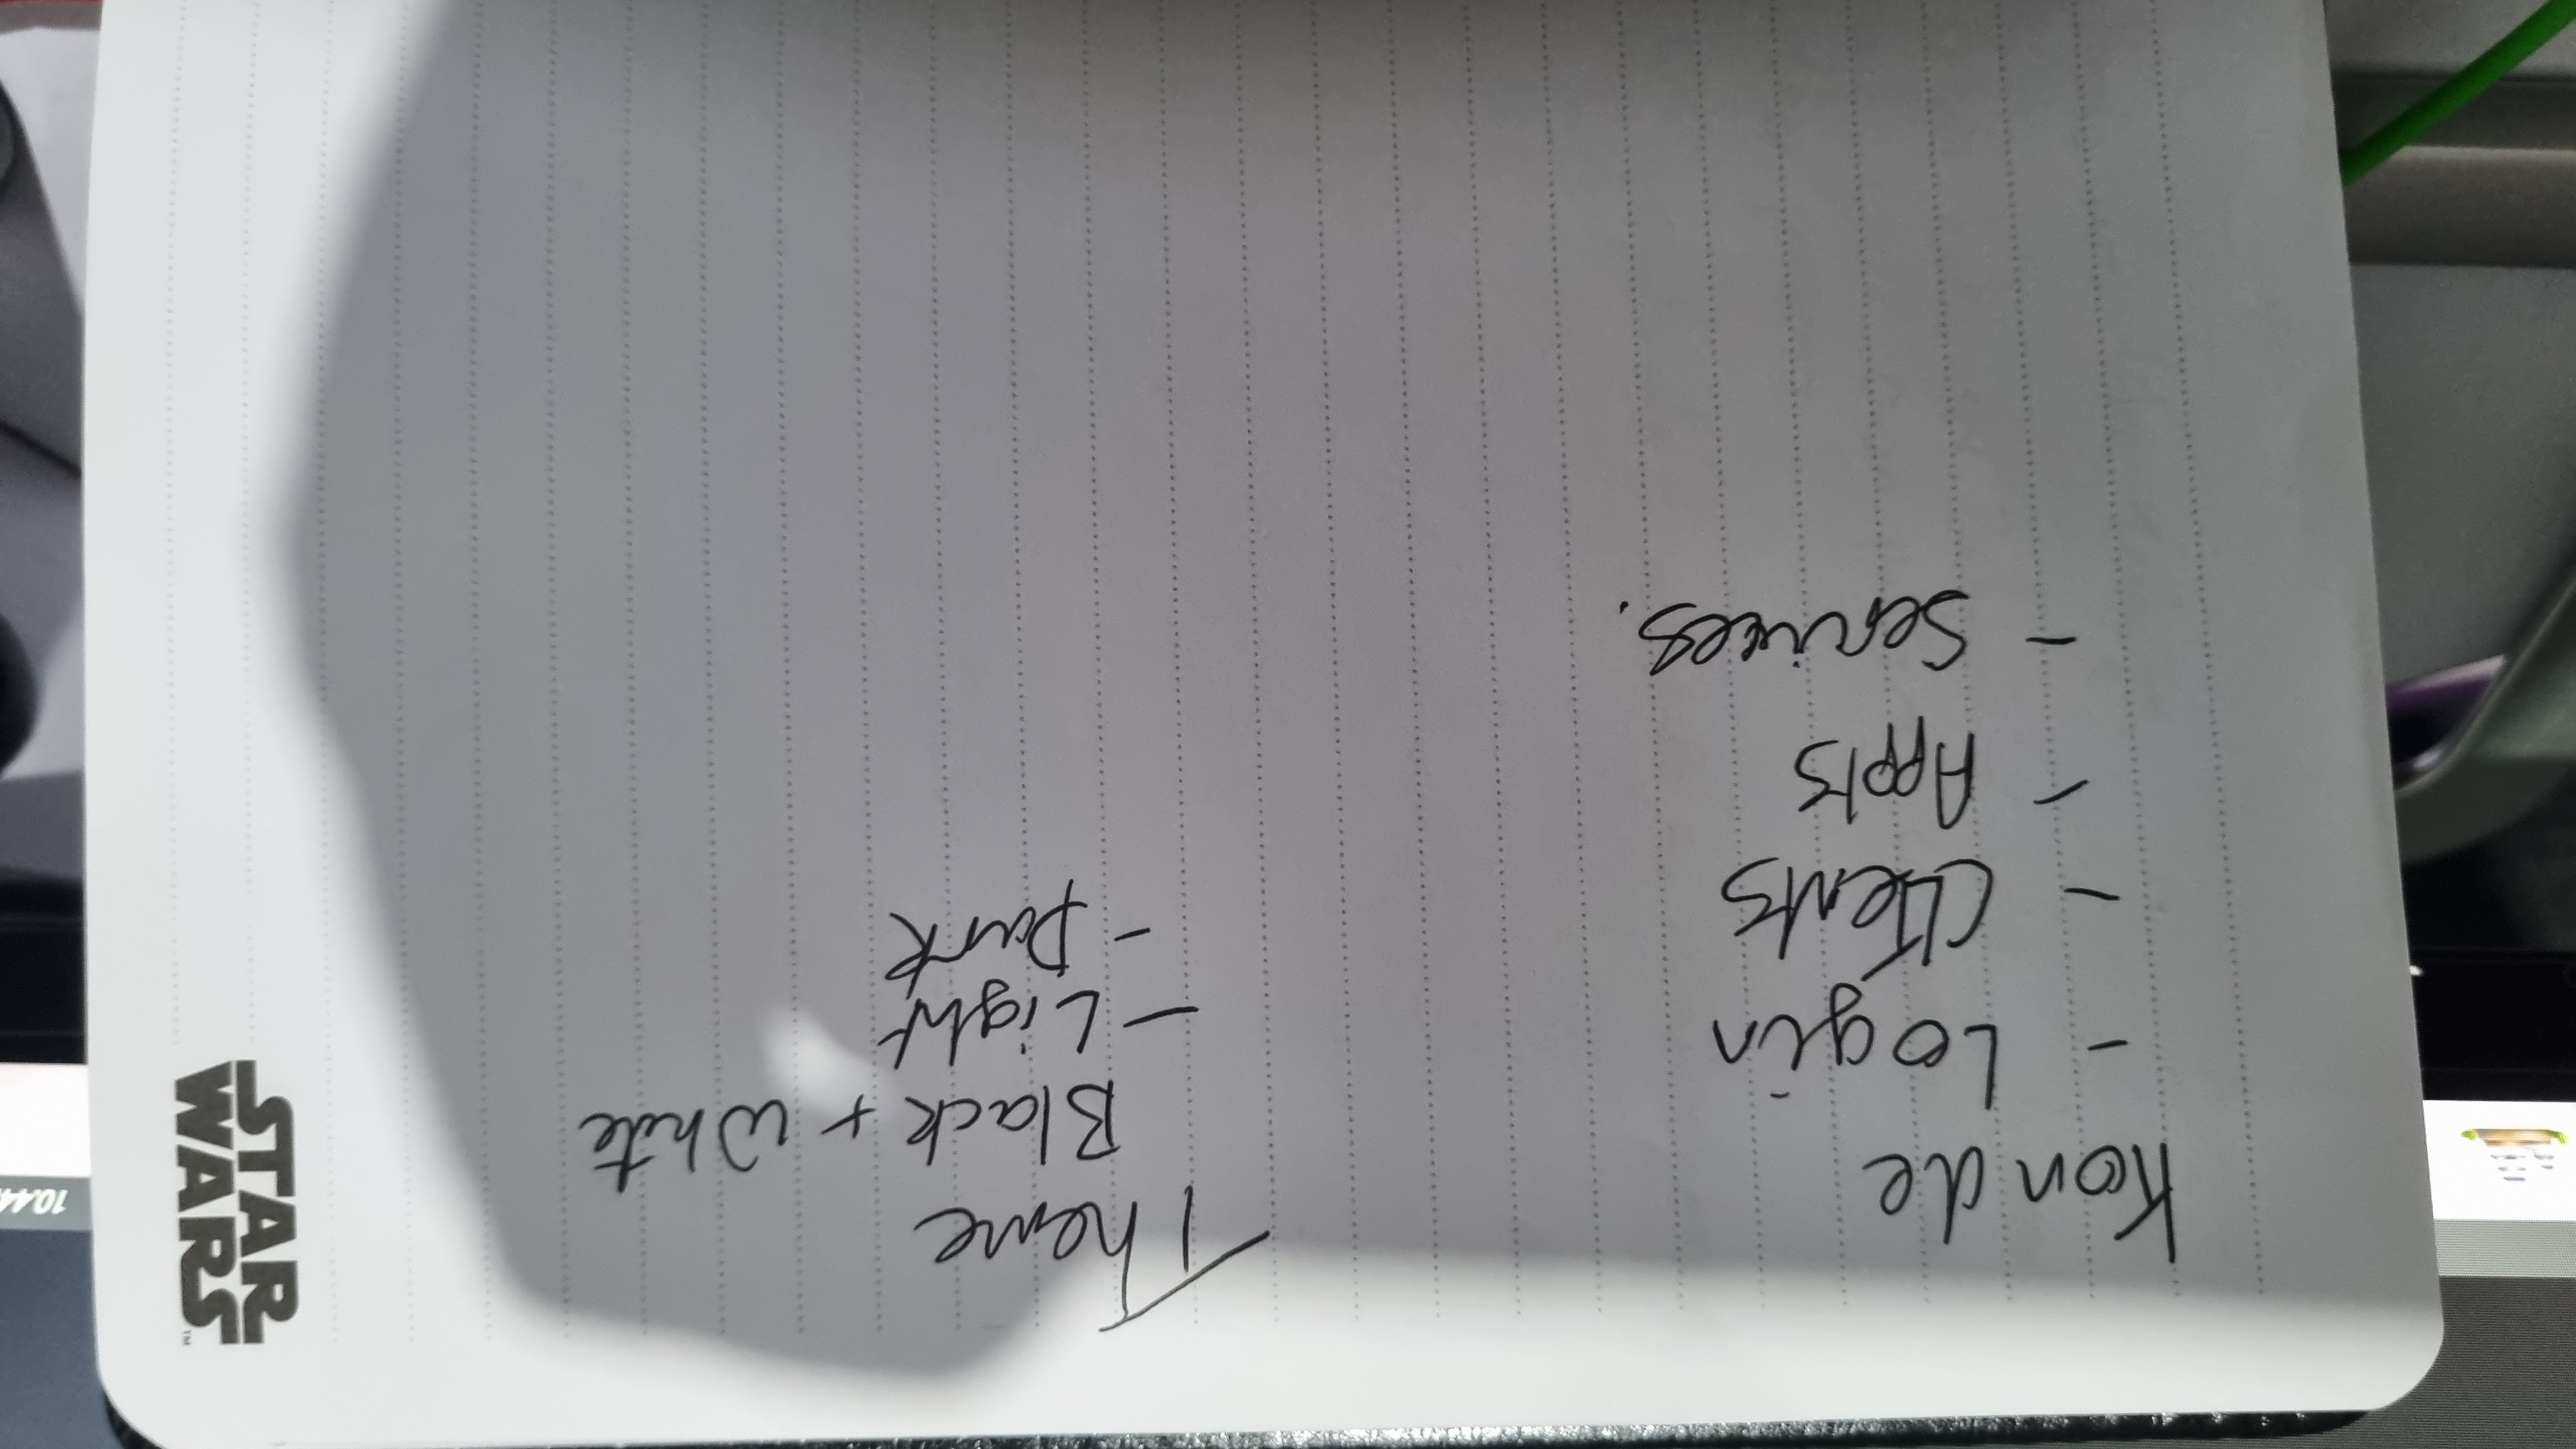 Konde
- Login
- Clients
- Appts
- Services.
Theme
Black + White
- Light
- Dark
STAR
WARS™
10.44